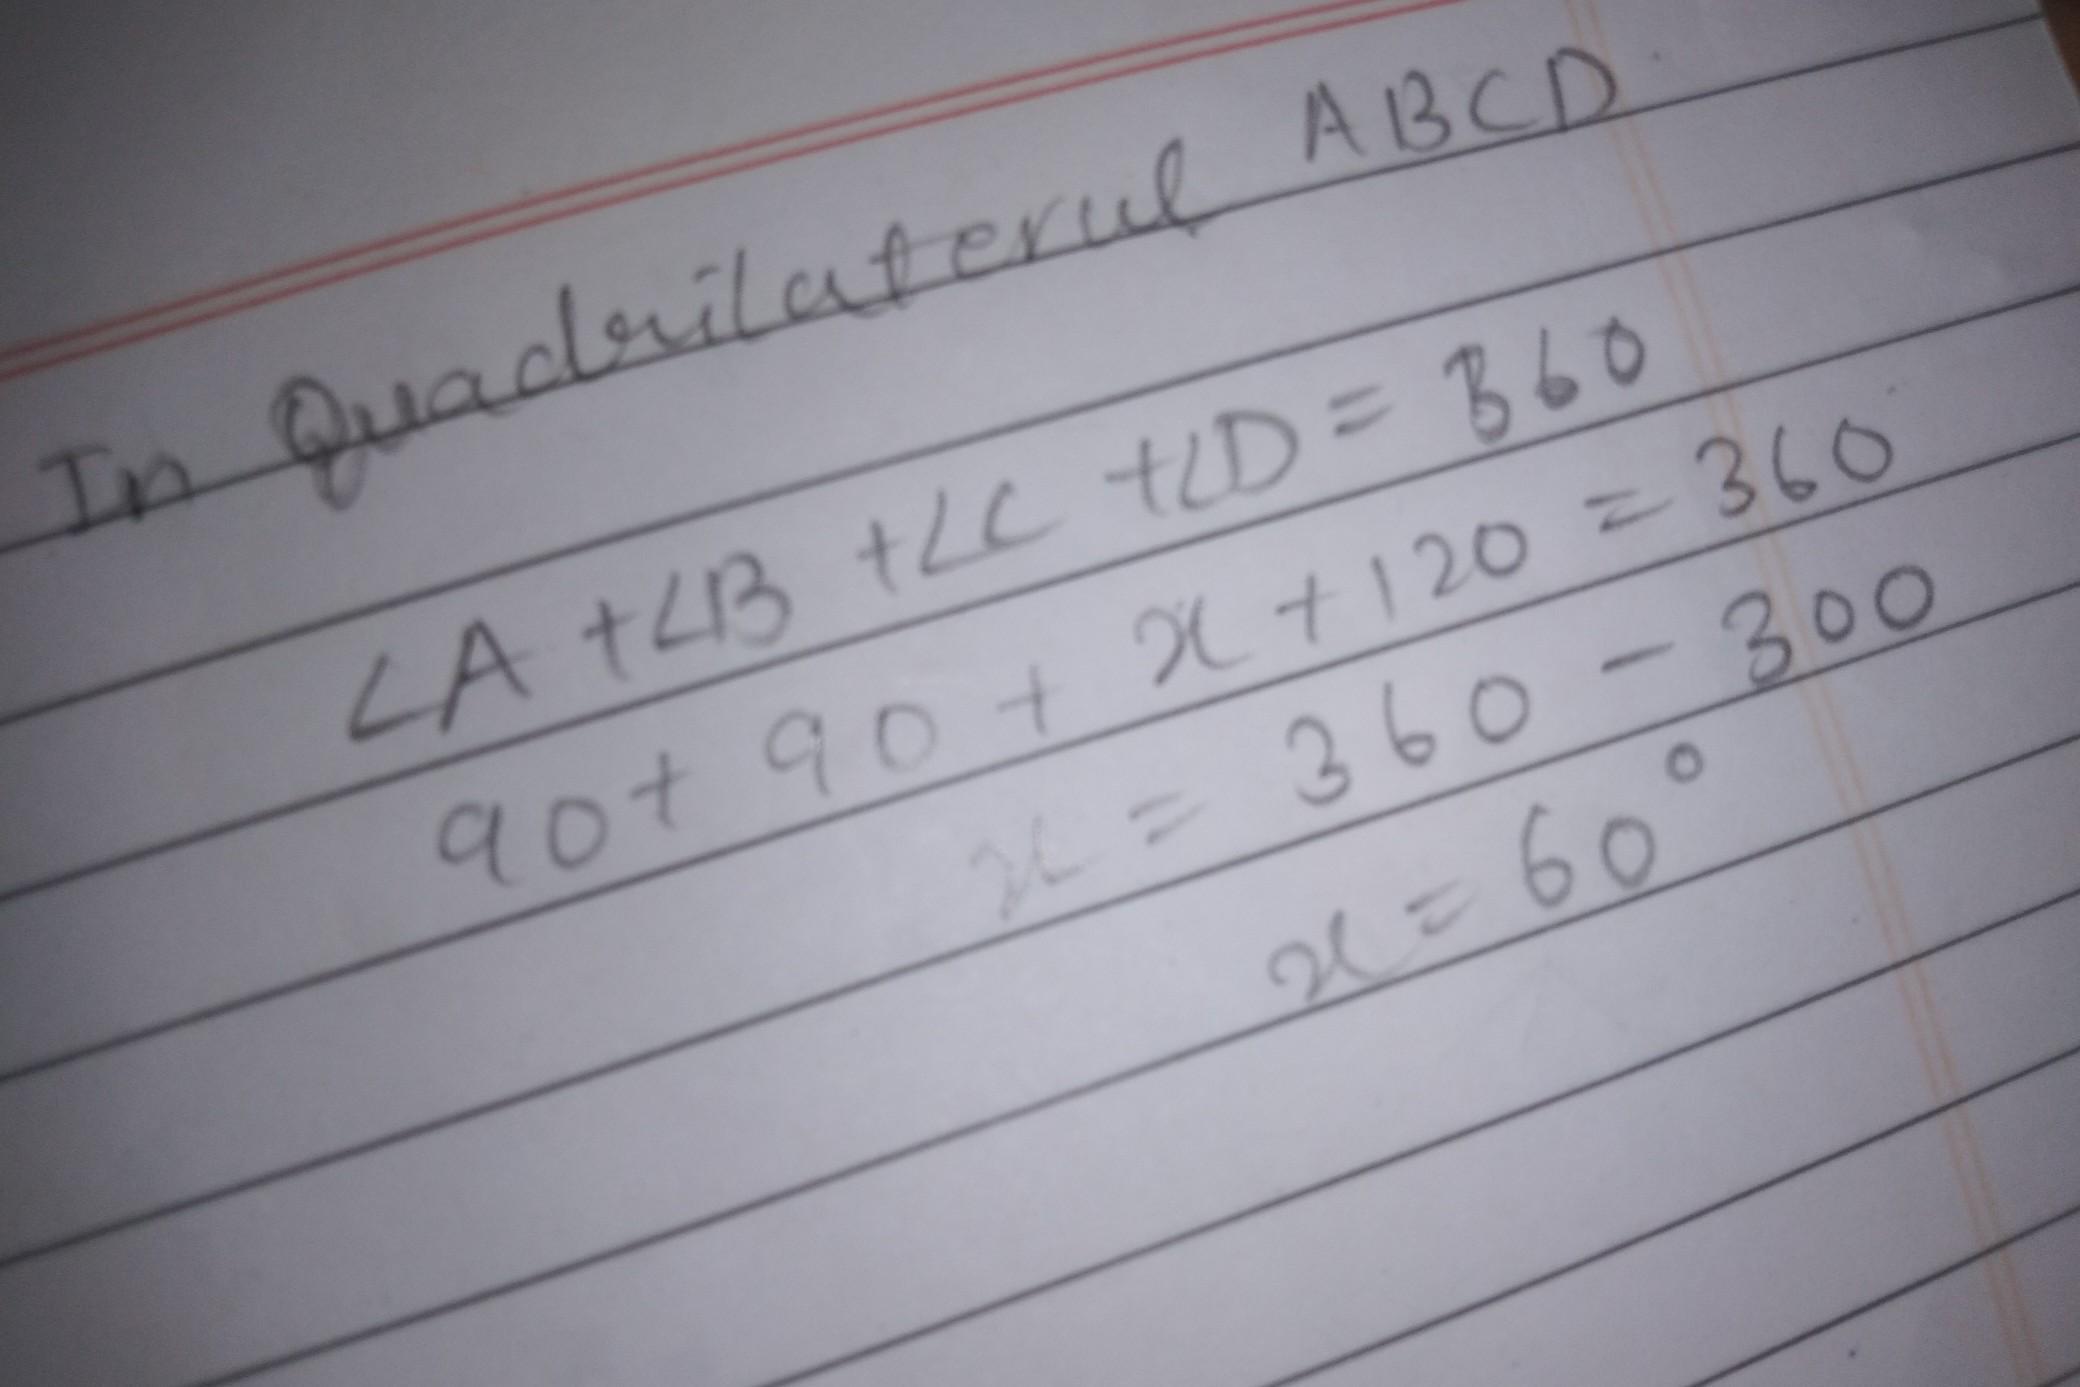 In Quadrilaterul ABCD
∠A +∠B +∠C +∠D = 360
90+ 90 + x + 120 = 360
x = 360 - 300
x = 60°